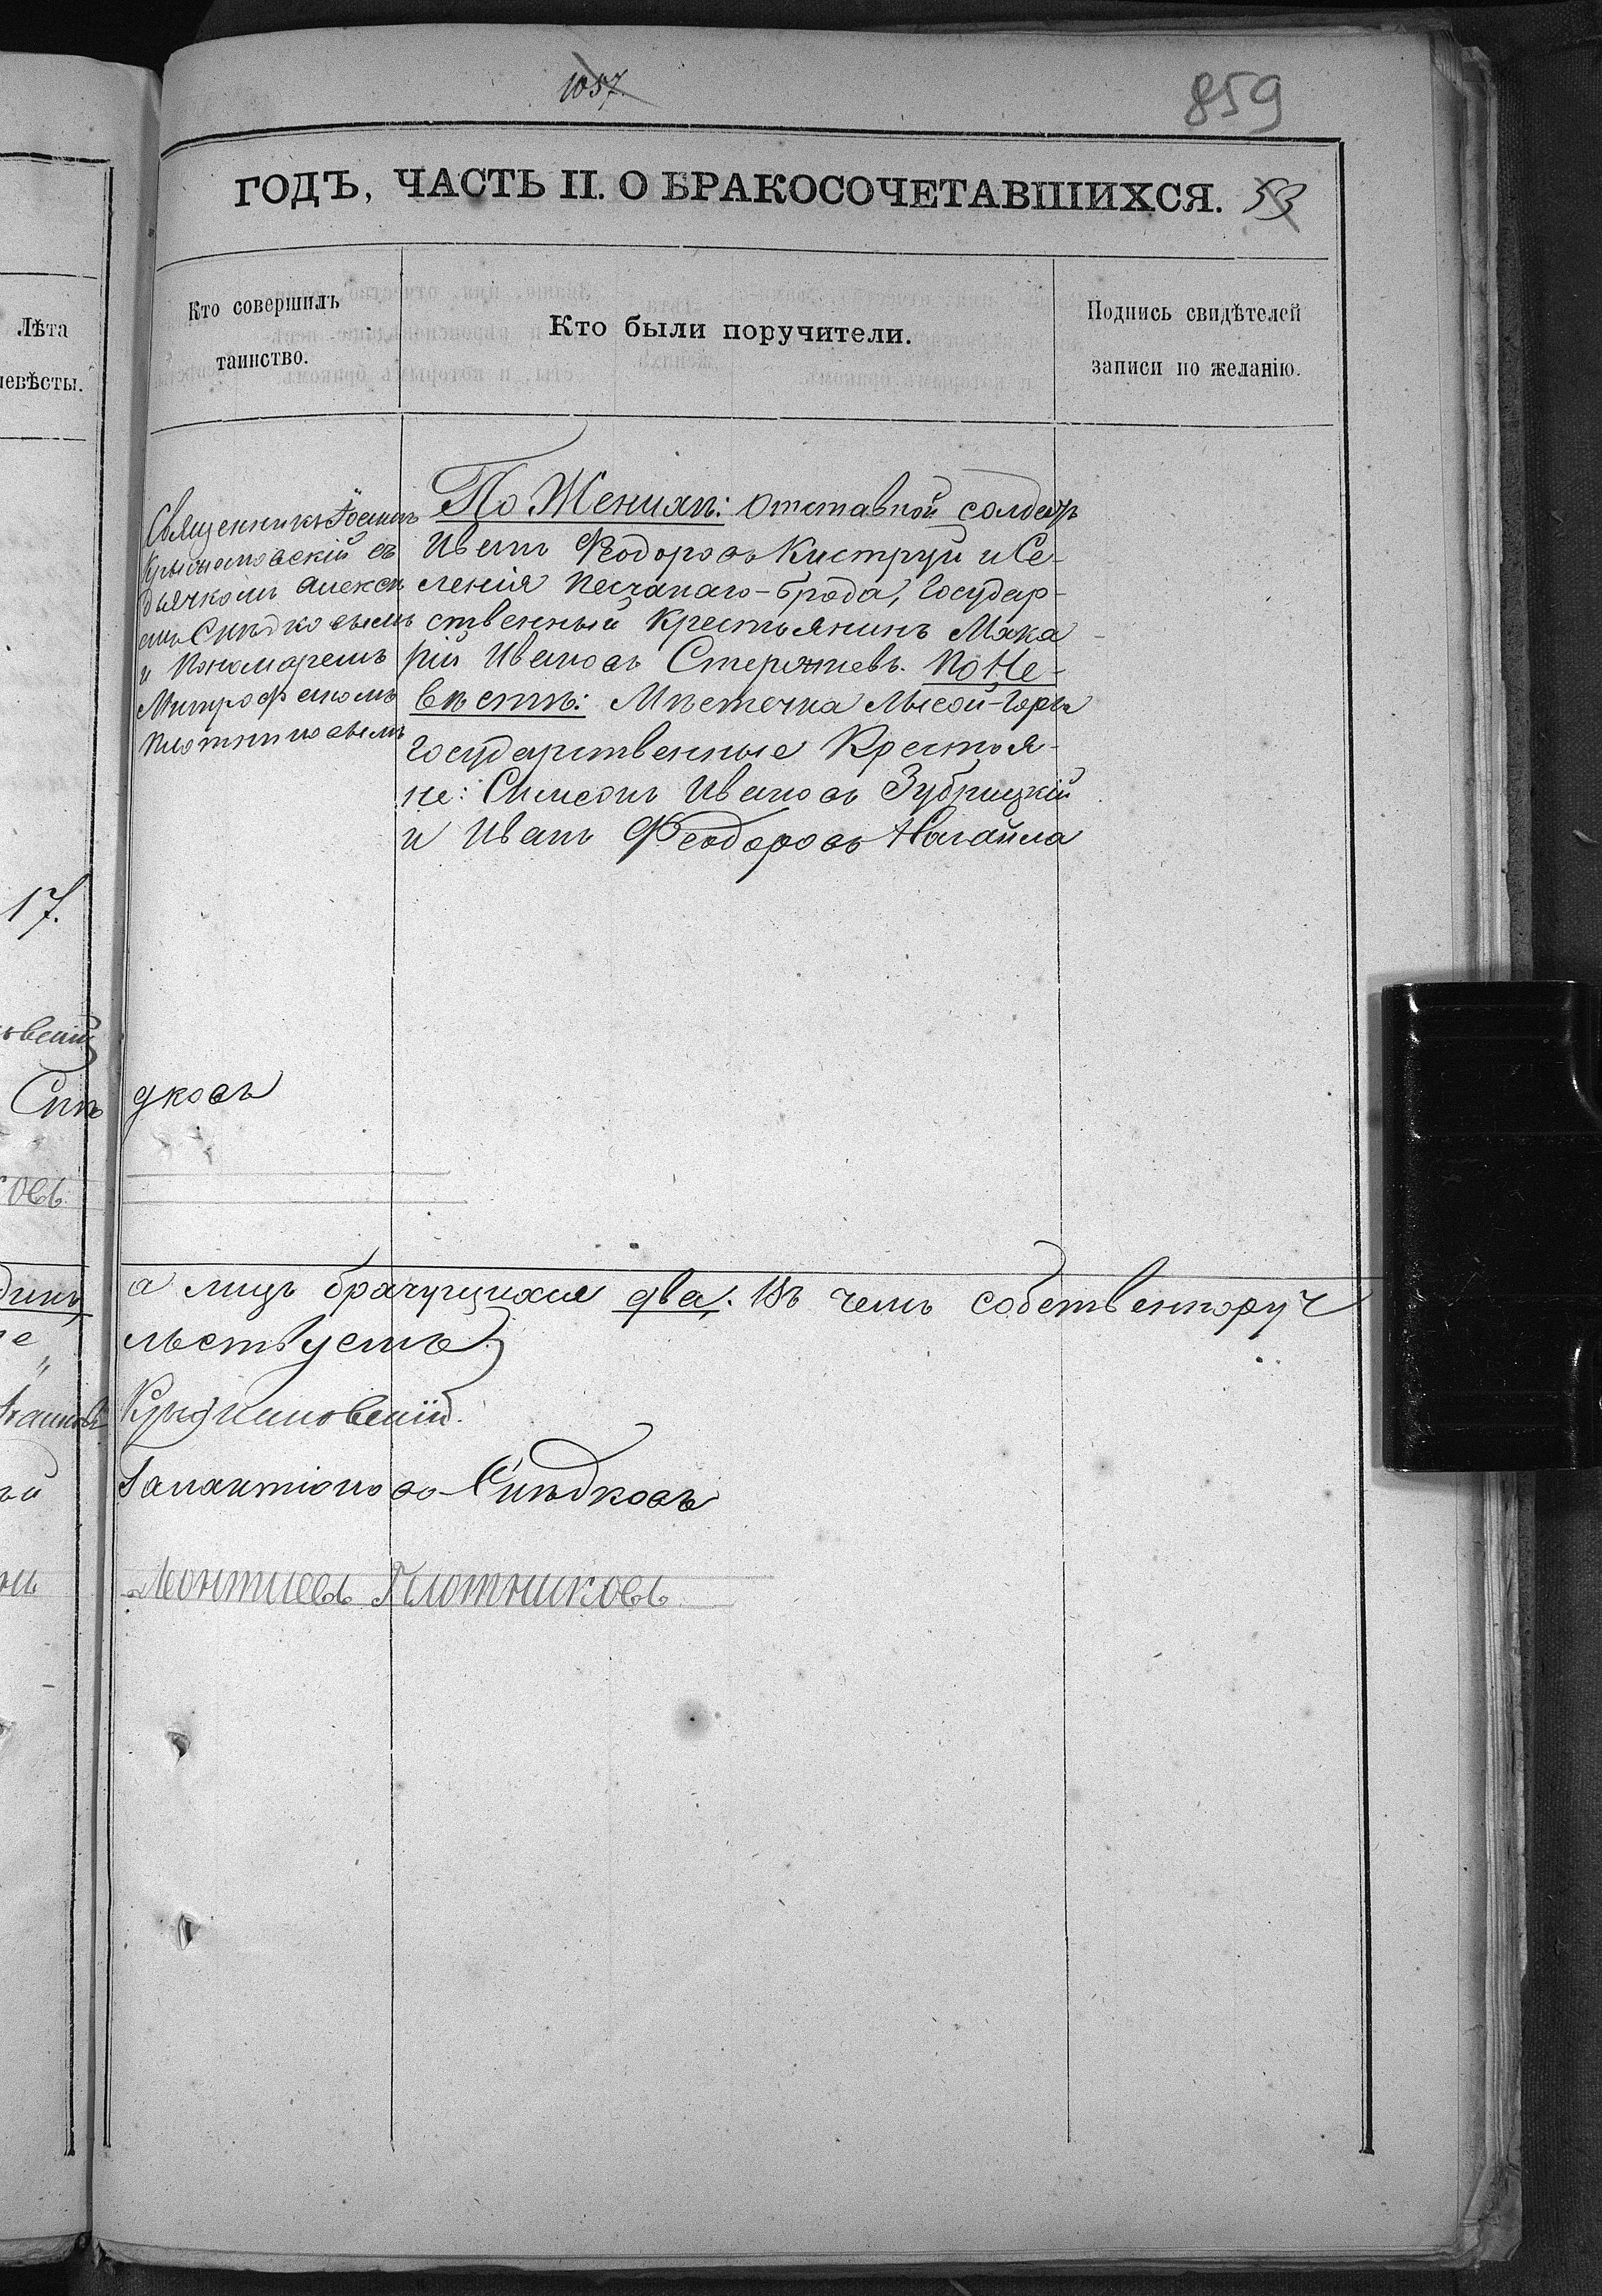 1057.
859
ГОДЪ, ЧАСТЬ II. О БРАКОСОЧЕТАВШИХСЯ. 53
Лѣта
невѣсты.
Кто совершилъ
таинство.
Кто были поручители.
Подпись свидѣтелей
записи по желанію.
Священникъ Іоаннъ
съ
дьячкомъ Алексѣ
емъ Снѣдковымъ
и Пономаремъ
Митрофаномъ
Плотниковымъ
По Женихѣ: Отставной солдатъ
Иванъ Ѳеодоровъ Киструй и Се-
ленія Песчанаго-брода, Государ-
ственный Крестьянинъ Мака-
рій Ивановъ По Не-
вѣстѣ: Мѣстечка Лысой-Горы
Государственные Крестья-
не: Симеонъ Ивановъ Зубрицкій
и Иванъ Ѳеодоровъ Нагайла
17.
Снѣ дковъ
а лицъ брачущихся два. Въ чемъ собственноруч
льствуемъ
Галактіоновъ Снѣдковъ
Леонтіевъ Плотниковъ